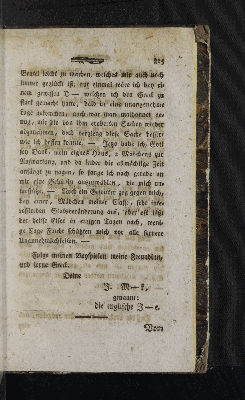 Brand leicht zu machen, welches mir auch noch
immer geglückt ist, nur einmal wäre ich bey ei-
nem gewissen D — welchen ich den Geck zu
stark gemacht hatte, bald in eine unangenehme
Lage gekommen, auch war man malhonnet ge-
nug, mir die von ihm eroberten Sachen wieder
abzunehmen, doch vergieng diese Sache besser
wie ich hoffen konnte. — Jezo habe ich, Gott
sey Dank, mein eignes Haus, 2 Mädchens zur
Aufwartung, und da leider die allmächtige Zeit
anfängt zu nagen, so fange ich nach gerade an
mir eine Gehülfin auszuwählen, die mich un-
terstützt. — Noch ein Gewitter zog gegen mich
bey einer, Mädchen meiner Classe, sehr inte-
ressirenden Staatsveränderung auf, aber es ist
der beste Eifer in einigen Tagen nach, weni-
ge Tage Furcht schützten mich vor alle fernere
Unannehmlichkeiten. —
Folge meinen Beyspielen meine Freundin,
und lerne Geck.
Deine
J. M—k.
genannt:
die englische J—e.